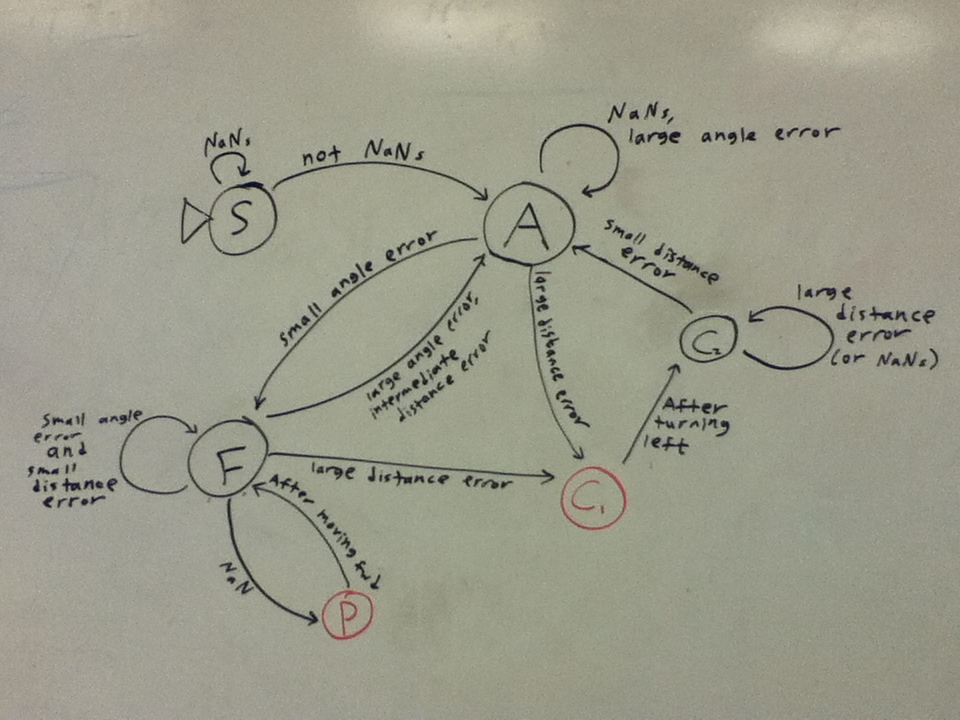 NaNs
not NaNs
NaNs,
large angle error
S
A
small angle error
large angle error,
intermediate
distance error
large distance error
small distance
error
C₂
large
distance
error
(or NaNs)
After
turning
left
Small angle
error
and
small
distance
error
F
large distance error
C₁
After moving fwd
NaN
P